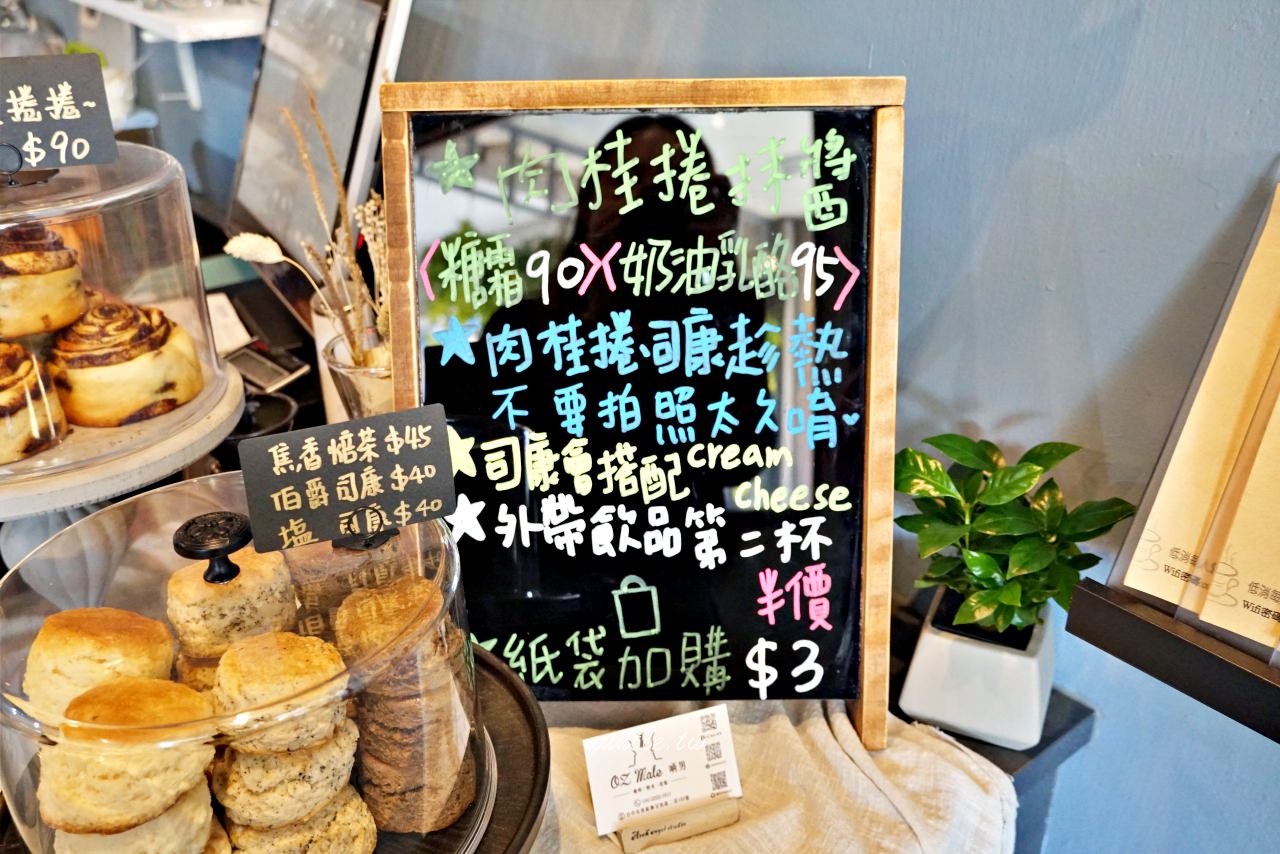 捲捲~
$90
肉桂捲抹醬
<糖霜90X奶油乳酪95>
肉桂捲.司康趁熱
不要拍照太久唷
司康會搭配cream
cheese
外帶飲品第二杯
半價
紙袋加購 $3
焦香焙茶 $45
伯爵司康 $40
塩 司康 $40
OZ Male 嶼男
低消
Wifi密
低消
Wifi密